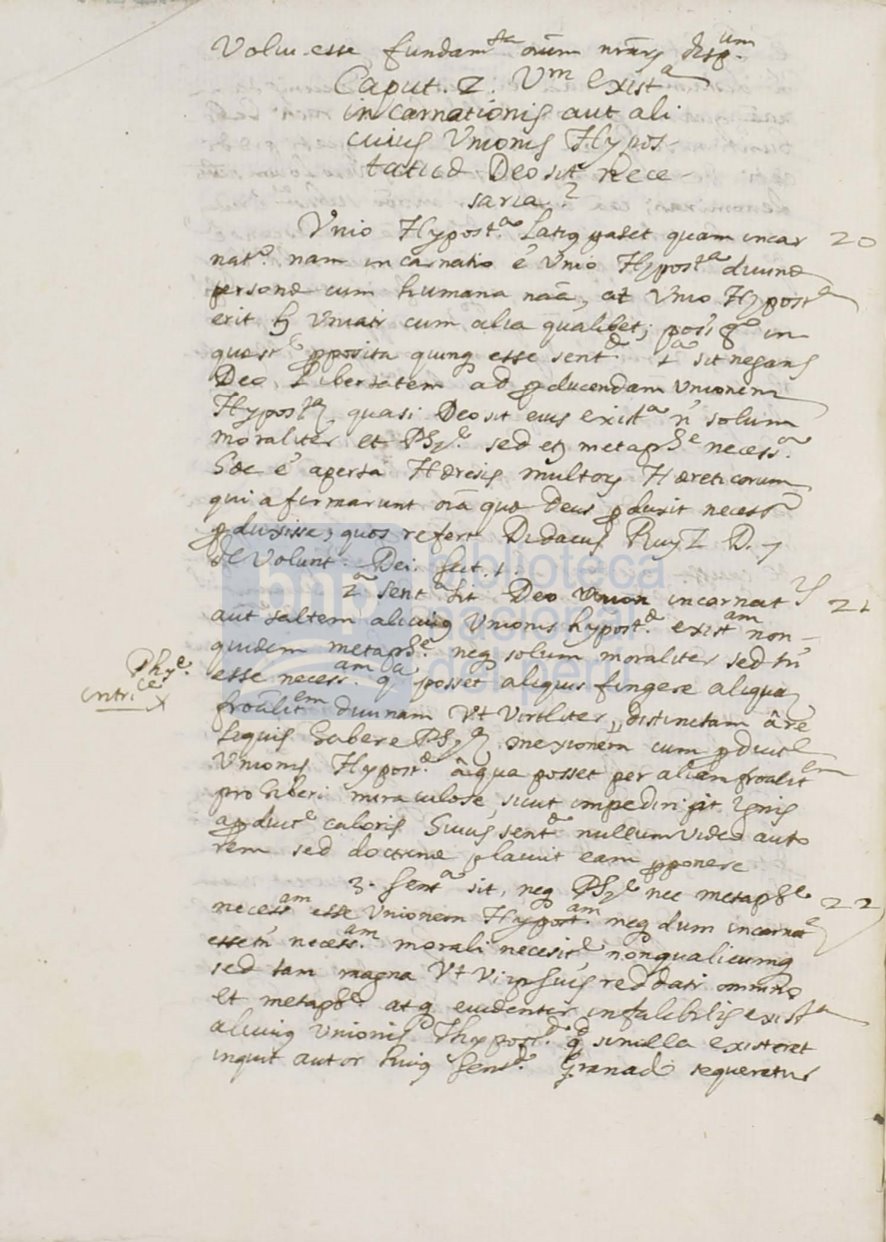 Volui esse fundam.ta oium nrarū disp.um
Caput. 2. Vm exist.a
incarnationis aut ali
cuius Vnionis Hypos-
taticæ Deo sit Nece-
saria?
Vnio Hypost.a Latiq patet quam incar 20
nat.o nam incarnatio ē Vnio Hypost.a diuinæ
personæ cum humana naā, at Vnio Hypost.a
erit Vniatr cum alia qualibet; in
quæst pposita quinq esse sent.æ 1.a sit negans
Deo Libertatem ad pducendam Vnionem
Hypost. quasi Deo sit eius exist.a n solum
moraliter et Phy.e sed et metaph.e necess.a
Hæc ē aperta Hæresis multorū Hæreticorum
qui afirmarunt oia quæ Deus pduxit necess.o
pduxisse, quos refert Didacus Ruyz D. 7
de Volunt. Dei. sect. 1.
2.a sent.a sit Deo Vnion incarnat.s 21
aut saltem alicuiq Vnionis hypost.æ exist.am non-
quidem metaph.e neq solum moraliter sed tn
Phy.e
intri.ce x
esse necess.am posset aliquis fingere aliqua
froalit.em diuinam Vt Virtliter distinctam
Liquis habere Phy. nexionem cum pduct.e
Vnionis Hypost.æ aqua posset per aliam froalit.em
prohiberi miraculose, sicut impediri pt ignis
apduct.e caloris Huius sent.æ nullum Video auto
rem sed doctrinæ placuit eam pponere
3. sent.a sit, neq Phy.e nec metaph.e 22
necess.am esse Vnionem Hypost.am neq dum incarnat
esse tn necess.am morali necesit.e non qualicumq
sed tam magna Vt Vi ipsius reddatr omnino
et metaph.e atq euidenter infalibilis exist.a
alicuiq Vnionis Hypost.æ si nulla existeret
inquit autor huiq sent.æ Granado sequeretur
biblioteca
nacional
del perú
bnp